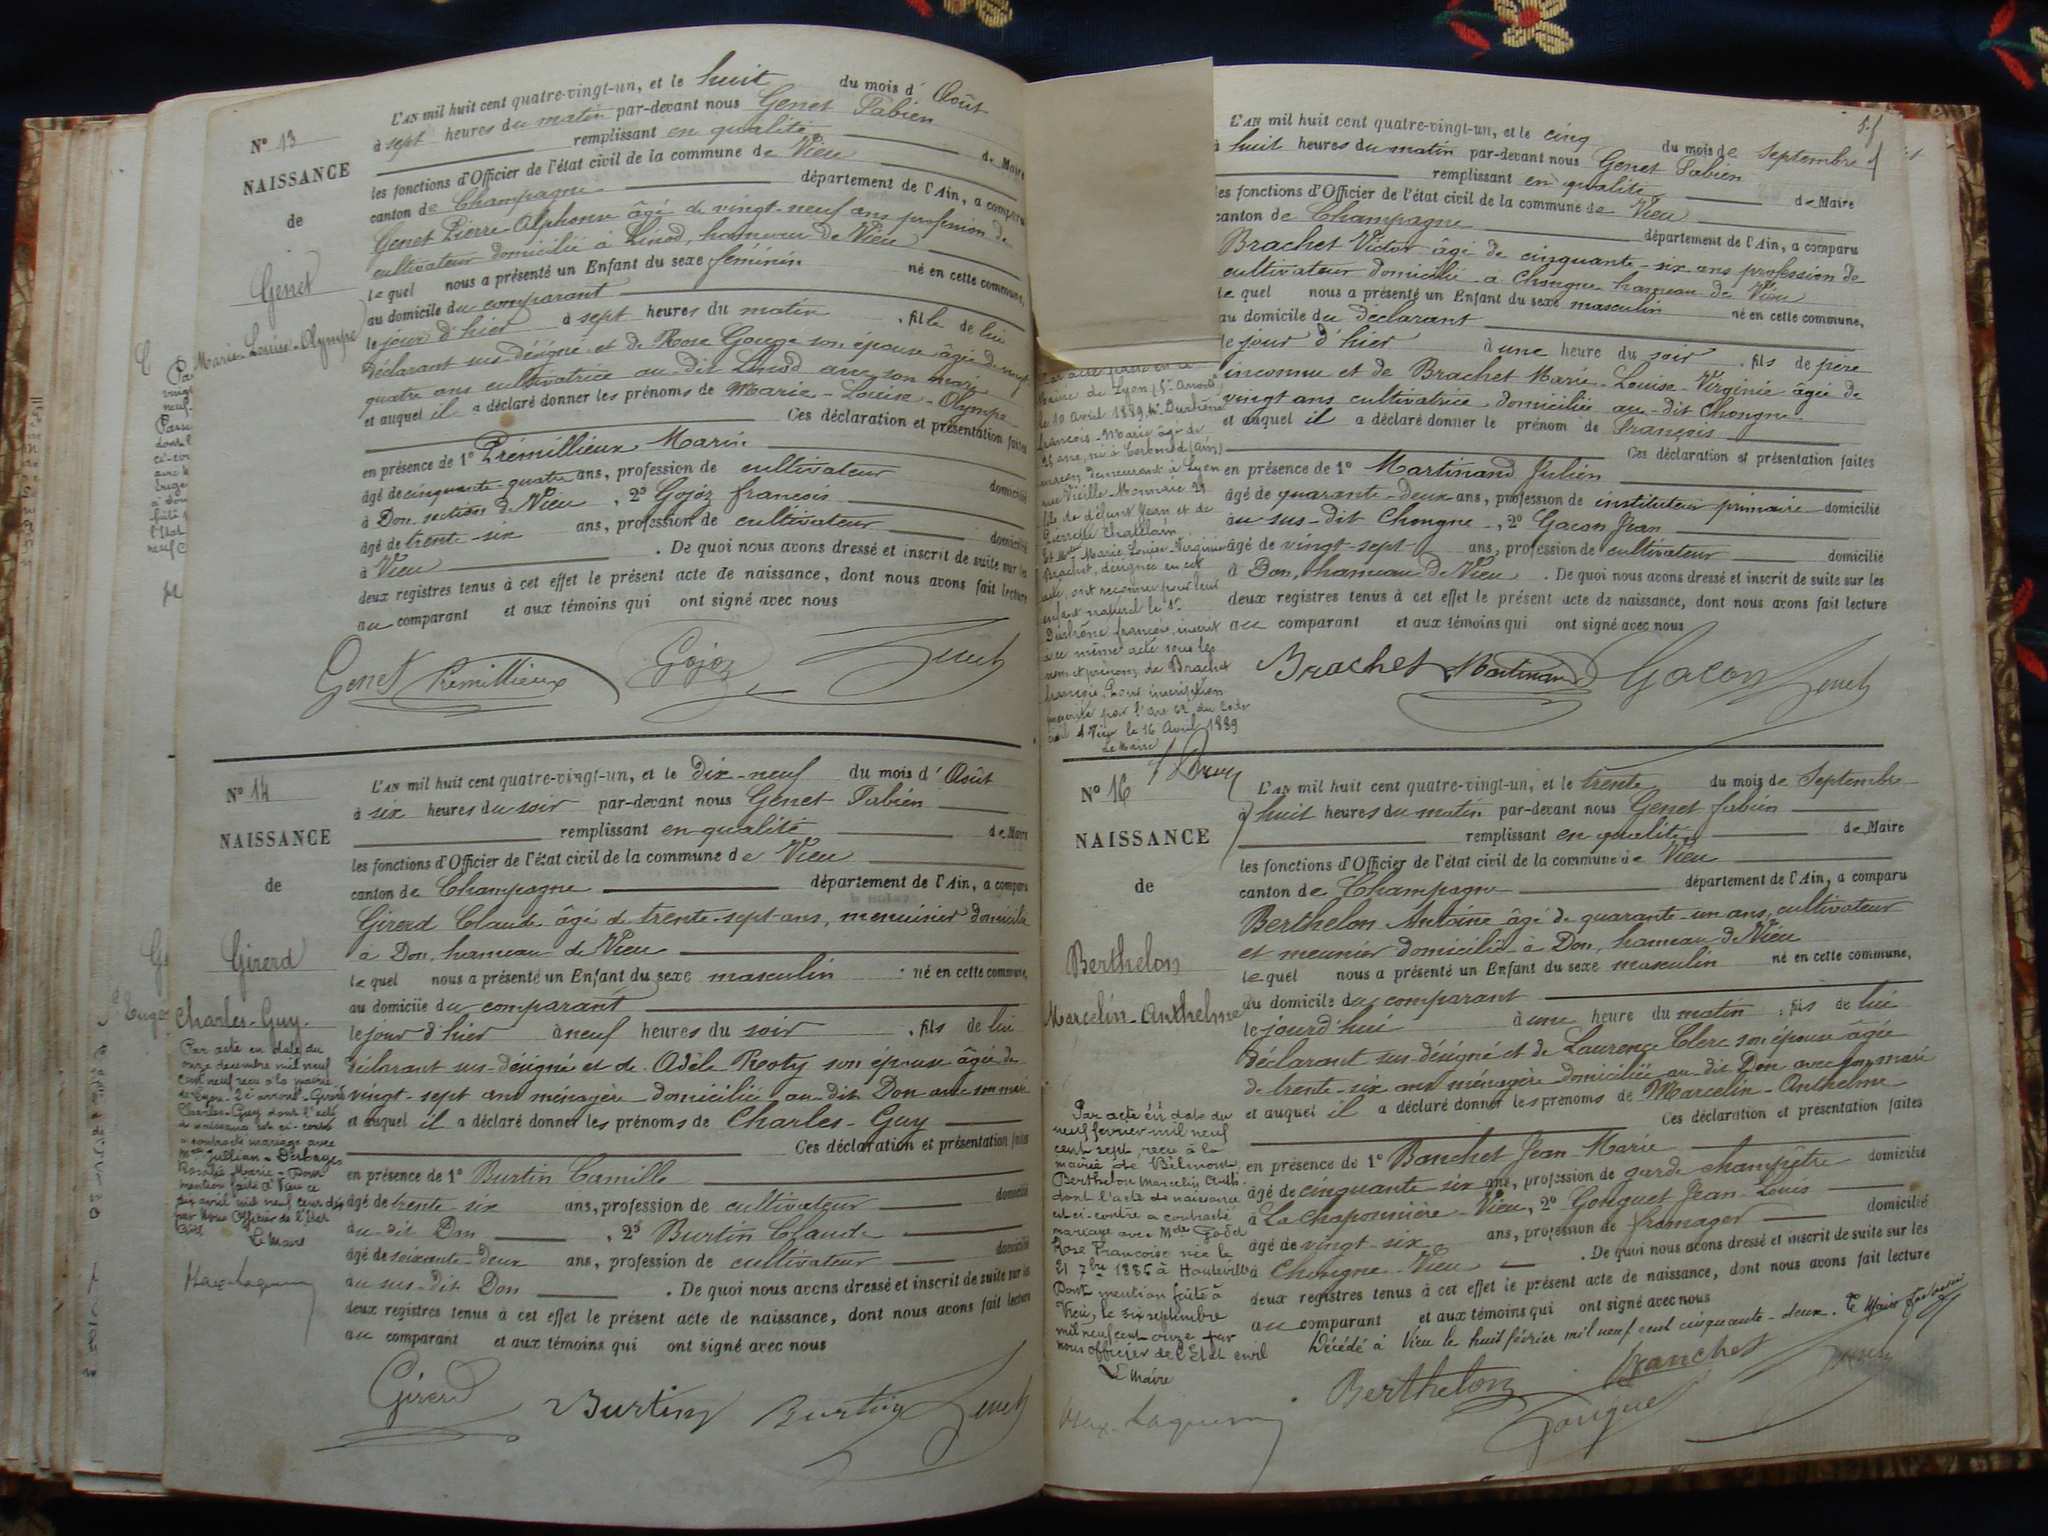 N° 13
NAISSANCE
de
Genet
Marie-Louise-Olympe
L'AN mil huit cent quatre-vingt-un, et le huit du mois d' Août
à sept heures du matin par-devant nous Genet Fabien
remplissant en qualité de Maire
les fonctions d'Officier de l'état civil de la commune de Vieu
canton de Champagne département de l'Ain, a comparu
Genet Pierre-Alphonse âgé de vingt-neuf ans profession de
cultivateur domicilié à Linod, hameau de Vieu
lequel nous a présenté un Enfant du sexe féminin né en cette commune,
au domicile du comparant
le jour d'hier à sept heures du matin, fille de lui
déclarant sus-désigné et de Rose Gouge son épouse âgée de vingt
quatre ans cultivatrice au dit Linod avec son mari
et auquel il a déclaré donner les prénoms de Marie-Louise-Olympe
Ces déclaration et présentation faites
en présence de 1° Prémillieux Marin
âgé de cinquante-quatre ans, profession de cultivateur domicilié
à Don section de Vieu, 2° Gojoz françois
âgé de trente-six ans, profession de cultivateur domicilié
à Vieu. De quoi nous avons dressé et inscrit de suite sur les
deux registres tenus à cet effet le présent acte de naissance, dont nous avons fait lecture
au comparant et aux témoins qui ont signé avec nous
Genet Prémillieux Gojoz Genet
N° 14
NAISSANCE
de
Girerd
Charles-Guy.
Par acte en date du
onze décembre mil neuf
cent neuf reçu à la mairie
de Lyon 2e arrond. Girerd
Charles-Guy dont l'acte
de naissance est ci-contre
a contracté mariage avec
Mlle Jullian-Desbayes
Rosalie Marie - Dont
mention faite à Vieu ce
dix avril mil neuf cent dix
par Nous Officier de l'état
Civil
Le Maire
L'AN mil huit cent quatre-vingt-un, et le dix-neuf du mois d' Août
à six heures du soir par-devant nous Genet Fabien
remplissant en qualité de Maire
les fonctions d'Officier de l'état civil de la commune de Vieu
canton de Champagne département de l'Ain, a comparu
Girerd Claude âgé de trente-sept ans, menuisier domicilié
à Don, hameau de Vieu
lequel nous a présenté un Enfant du sexe masculin né en cette commune,
au domicile du comparant
le jour d'hier à neuf heures du soir, fils de lui
déclarant sus-désigné et de Adèle Rooty son épouse âgée de
vingt-sept ans ménagère domiciliée au dit Don avec son mari
et auquel il a déclaré donner les prénoms de Charles-Guy
Ces déclaration et présentation faites
en présence de 1° Burtin Camille
âgé de trente six ans, profession de cultivateur domicilié
au dit Don, 2° Burtin Claude
âgé de soixante-deux ans, profession de cultivateur domicilié
au sus-dit Don. De quoi nous avons dressé et inscrit de suite sur les
deux registres tenus à cet effet le présent acte de naissance, dont nous avons fait lecture
au comparant et aux témoins qui ont signé avec nous
Girerd Burtin Burtin Genet
L'AN mil huit cent quatre-vingt-un, et le cinq du mois de Septembre
à huit heures du matin par-devant nous Genet Fabien
remplissant en qualité de Maire
les fonctions d'Officier de l'état civil de la commune de Vieu
canton de Champagne département de l'Ain, a comparu
Brachet Victor âgé de cinquante-six ans profession de
cultivateur domicilié à Chongne hameau de Vieu
lequel nous a présenté un Enfant du sexe masculin né en cette commune,
au domicile du déclarant
le jour d'hier à une heure du soir, fils de père
inconnu et de Brachet Marie-Louise-Virginie âgée de
vingt ans cultivatrice domiciliée au-dit Chongne
et auquel il a déclaré donner le prénom de François
Ces déclaration et présentation faites
en présence de 1° Martinand Julien
âgé de quarante-deux ans, profession de instituteur primaire domicilié
au sus-dit Chongne, 2° Gacon Jean
âgé de vingt-sept ans, profession de cultivateur domicilié
à Don, hameau de Vieu. De quoi nous avons dressé et inscrit de suite sur les
deux registres tenus à cet effet le présent acte de naissance, dont nous avons fait lecture
au comparant et aux témoins qui ont signé avec nous
Brachet Martinand Gacon Genet
mairie de Lyon (5e Arrondt)
le 10 Avril 1889 Mr Duchêne
François-Marie âgé de
25 ans, né à (Ain)
maçon, demeurant à Lyon
rue Vieille-Monnaie 21
fils de défunt Jean et de
Pierrette Chatelain
Et Mlle Marie-Louise-Virginie
Brachet, désignée en cet
acte, ont reconnu pour leur
enfant naturel le Sr
Duchêne françois, inscrit
à ce même acte sous les
nom et prénom de Brachet
françois. Pour inscription
par l'art 62 du Code
civil à Vieu le 16 Avril 1889
Le Maire
N° 16
NAISSANCE
de
Berthelon
Marcelin-Anthelme
Par acte en date du
neuf février mil neuf
cent sept, reçu à la
mairie de Belmont,
Berthelon Marcelin Anth.
dont l'acte de naissance
est ci-contre a contracté
mariage avec Mlle
Rose Françoise née le
21 7bre 1885 à Hauteville
Dont mention faite à
Vieu, le six septembre
mil neuf cent onze par
nous officier de l'Etat civil
Le Maire
L'AN mil huit cent quatre-vingt-un, et le trente du mois de Septembre
à huit heures du matin par-devant nous Genet fabien
remplissant en qualité de Maire
les fonctions d'Officier de l'état civil de la commune de Vieu
canton de Champagne département de l'Ain, a comparu
Berthelon Antoine âgé de quarante-un ans, cultivateur
et meunier domicilié à Don, hameau de Vieu
lequel nous a présenté un Enfant du sexe masculin né en cette commune,
au domicile du comparant
le jourd'hui à une heure du matin, fils de lui
déclarant sus-désigné et de Laurence Clerc son épouse âgée
de trente-six ans ménagère domiciliée au dit Don avec son mari
et auquel il a déclaré donner les prénoms de Marcelin-Anthelme
Ces déclaration et présentation faites
en présence de 1° Banchet Jean-Marie
âgé de cinquante six ans, profession de garde champêtre domicilié
à La Chapounière-Vieu, 2° Gonguet Jean-Louis
âgé de vingt-six ans, profession de fromager domicilié
à Chongne-Vieu. De quoi nous avons dressé et inscrit de suite sur les
deux registres tenus à cet effet le présent acte de naissance, dont nous avons fait lecture
au comparant et aux témoins qui ont signé avec nous
Décédé à Vieu le huit février mil neuf cent cinquante-deux. Le Maire
Berthelon Banchet Gonguet Genet